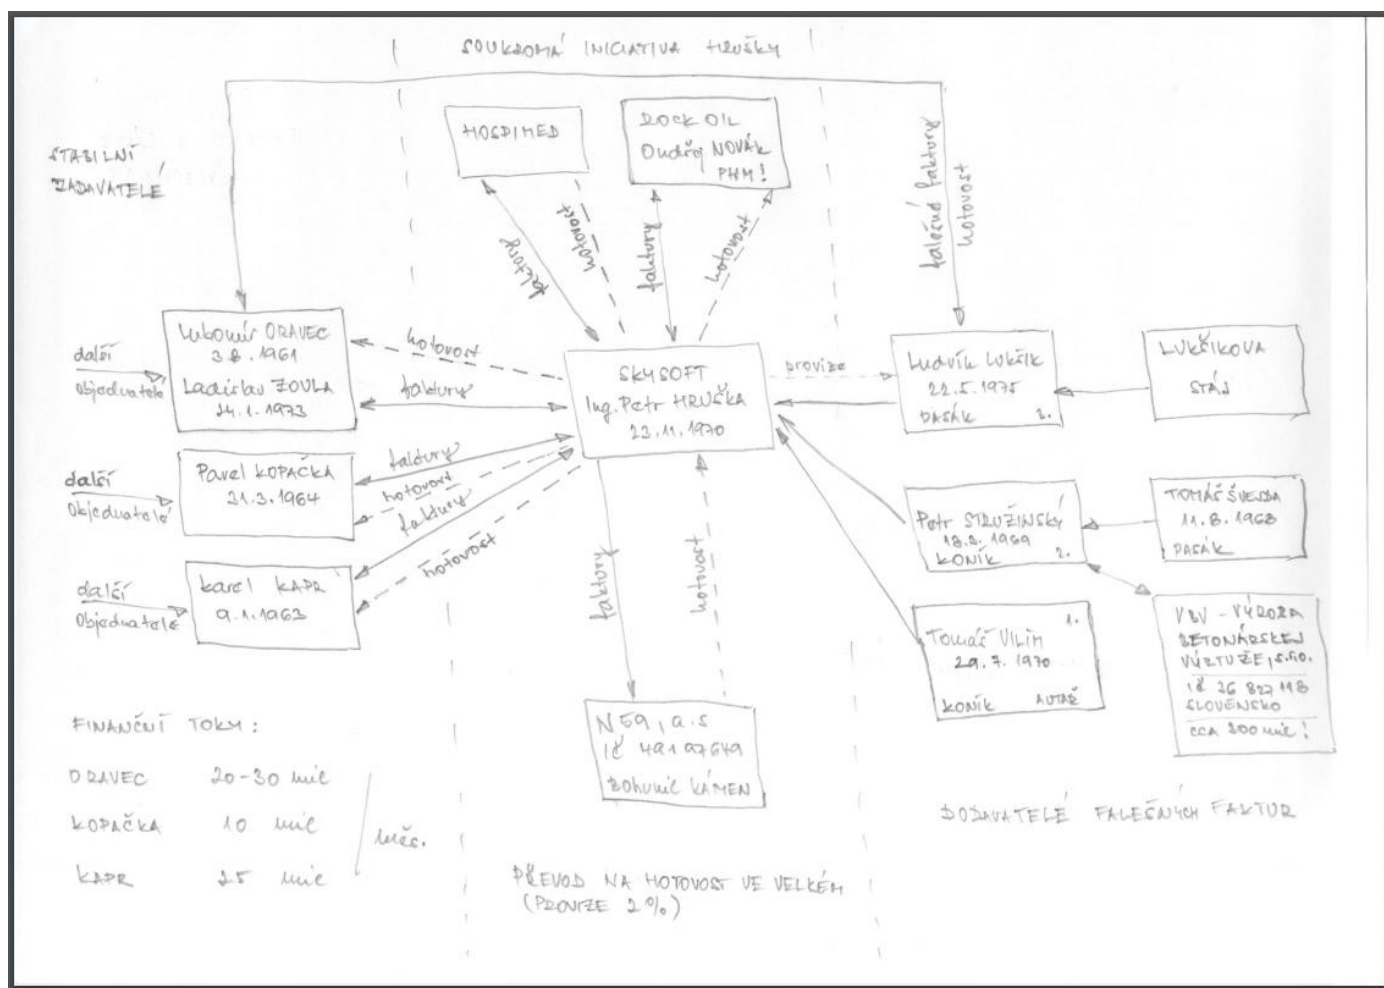 SOUKROMÁ INICIATIVA HRUŠKY
STABILNÍ
ZADAVATELÉ
HOSPIMED
ROCK OIL
Ondřej NOVÁK
PHM!
faktury
hotovost
faktury
hotovost
falešné faktury
hotovost
další
Objednatelé
Lubomír ORAVEC
3.8.1961
Ladislav ZOULA
24.1.1973
hotovost
faktury
SKYSOFT
Ing. Petr HRUŠKA
23.11.1970
provize
Ludvík LUKŠÍK
22.5.1975
PASÁK 3.
LUKŠÍKOVA
STÁJ
další
Objednatelé
Pavel KOPAČKA
31.3.1964
faktury
hotovost
faktury
hotovost
Petr STRUŽINSKÝ
1969
KONÍK 2.
TOMÁŠ ŠVEJDA
11.8.1968
PASÁK
další
Objednatelé
karel KAPR
9.1.1963
faktury
hotovost
1.
Tomáš VILÍM
29.7.1970
KONÍK AUTAŘ
VBV - VÝROBA
BETONÁRSKEJ
VÝZTUŽE, s.r.o.
IČ 36 827 118
SLOVENSKO
CCA 200 mil!
N59, a.s
IČ 49197649
Bohumil KÁMEN
FINANČNÍ TOKY:
ORAVEC 20-30 mil
KOPAČKA 10 mil
KAPR 25 mil
měs.
PŘEVOD NA HOTOVOST VE VELKÉM
(PROVIZE 2%)
DODAVATELÉ FALEŠNÝCH FAKTUR